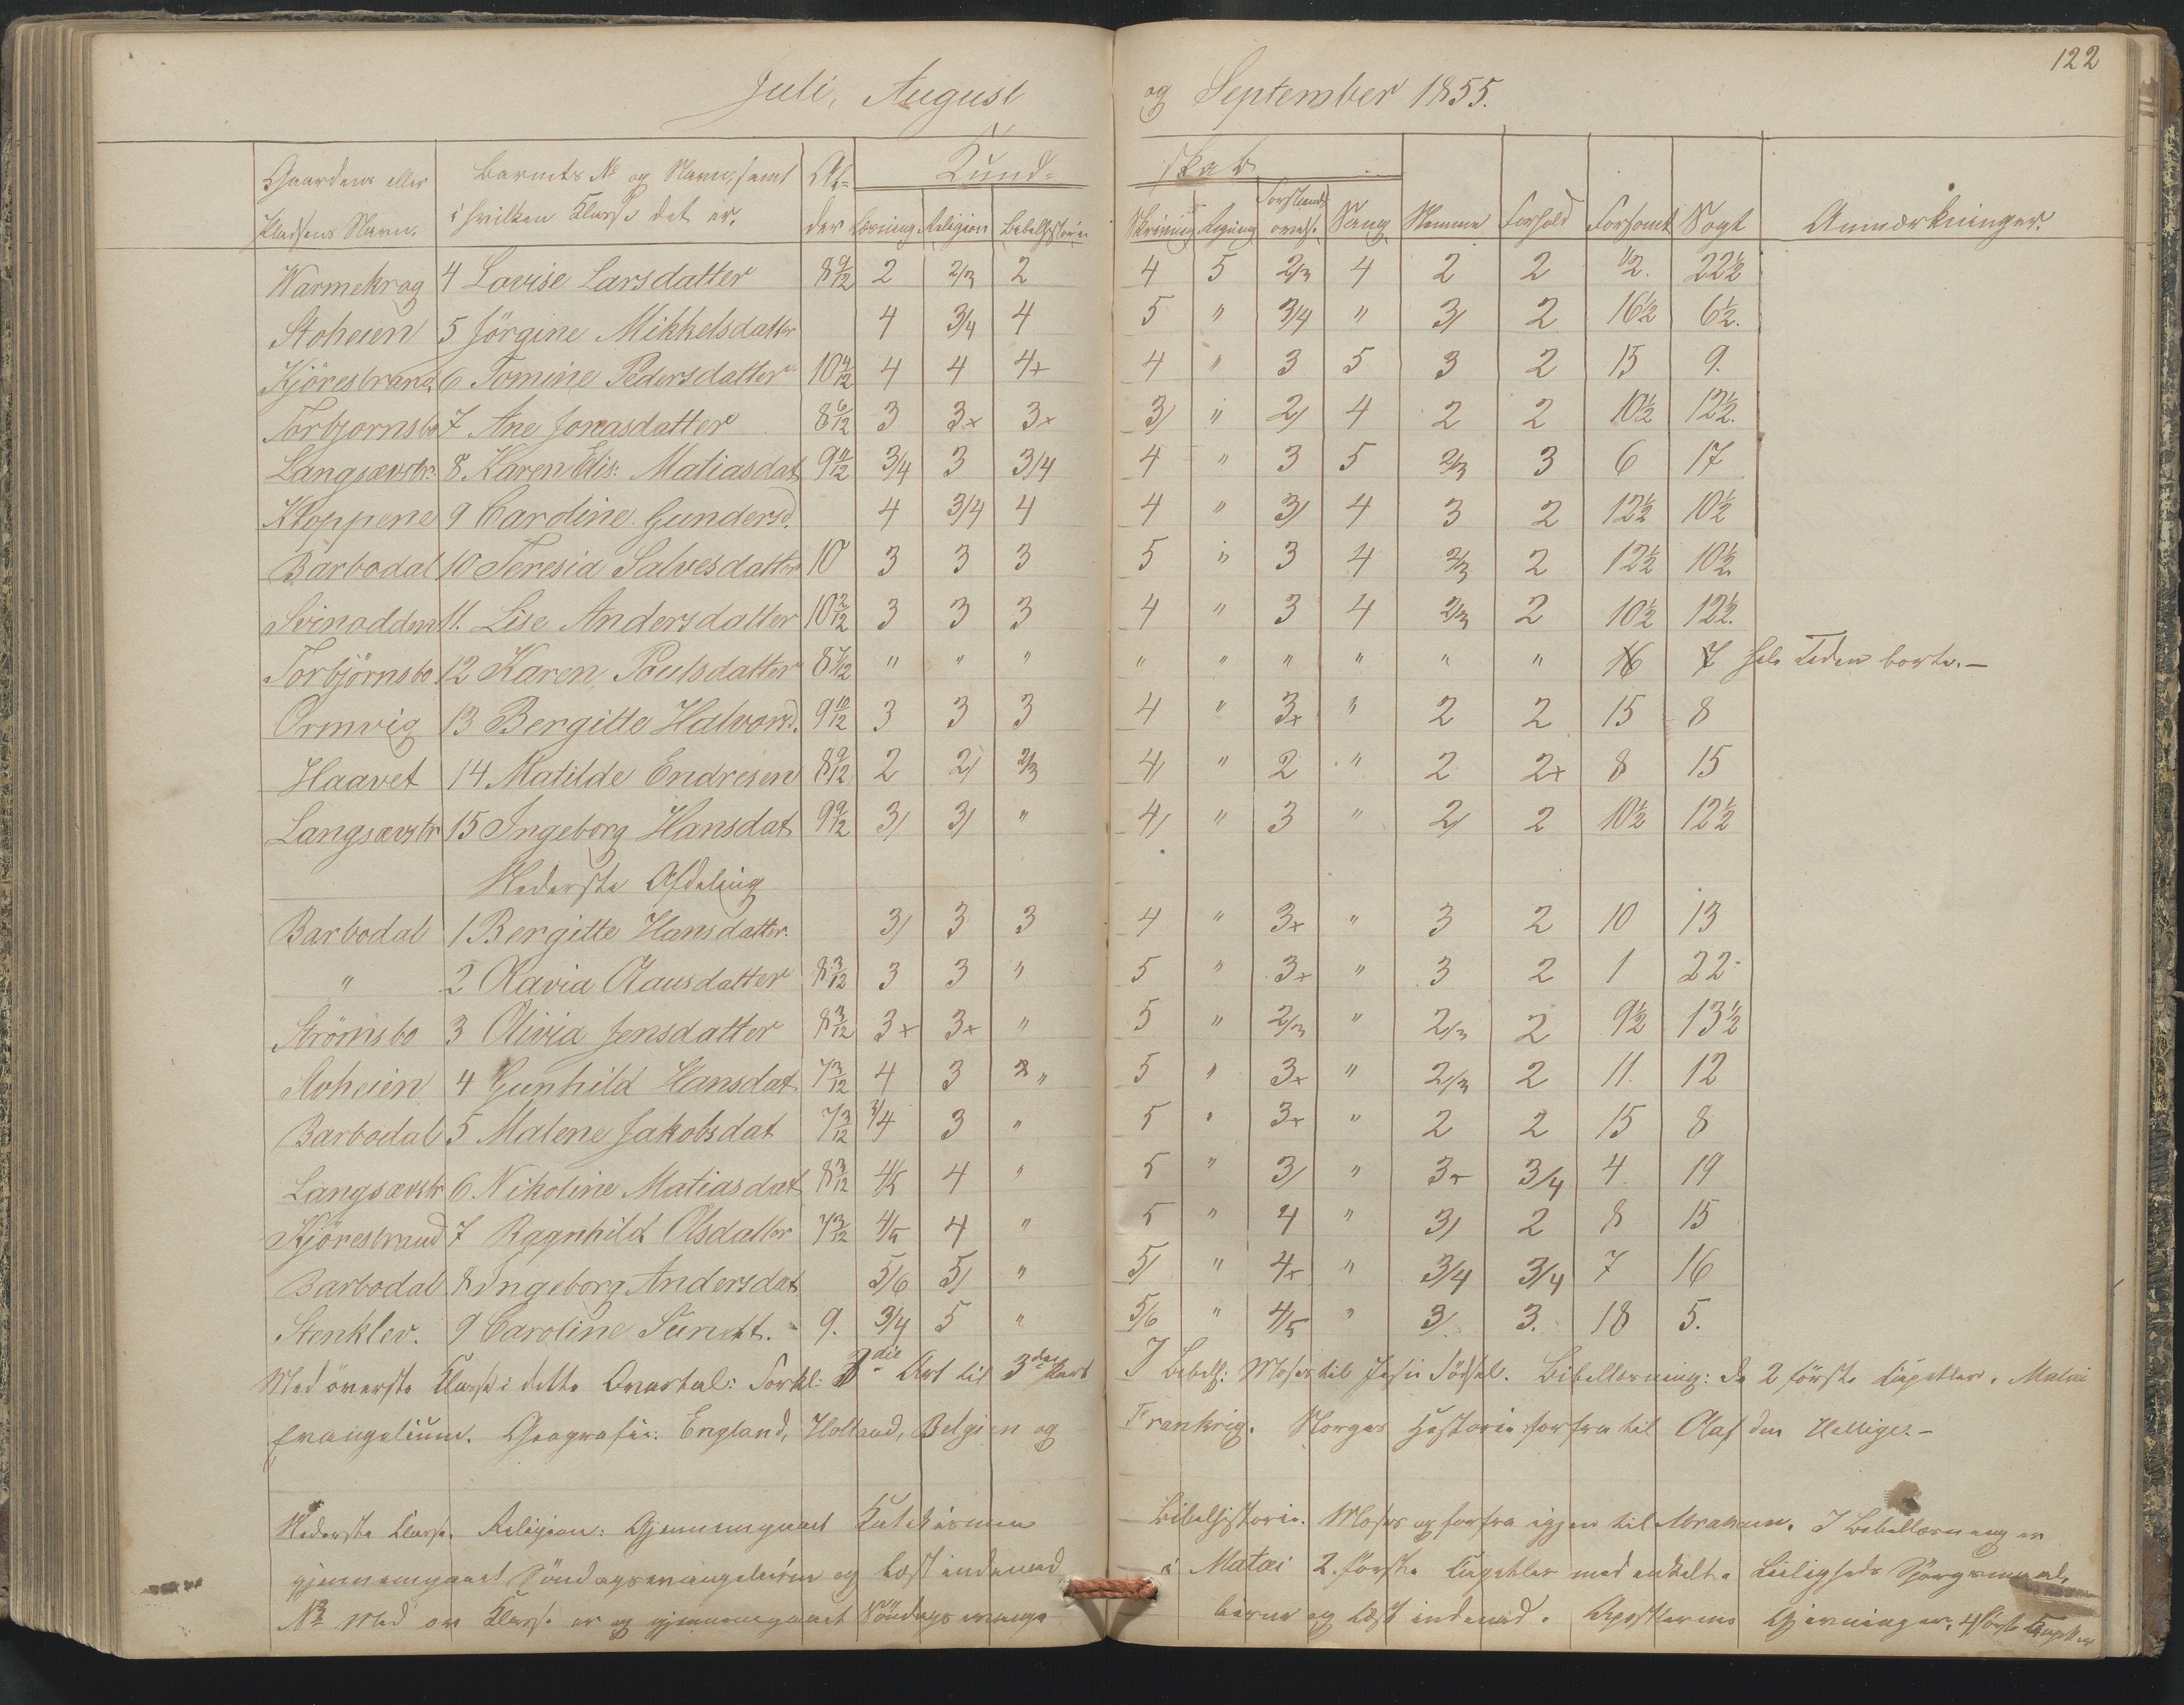 122
Juli, August og September 1855.
Gaardens eller Pladsens Navn. Barnets No og Navn, samt i hvilken Klasse det er. Al-der Kund-skab Læsning Religion Bibelhistorie Skrivning Regning Forstandsøvels. Sang Nemme Forhold Forsømt Søgt Anmærkninger.
Warmekrog 4 Lovise Larsdatter 8 9/12 2 2/3 2 4 5 2/3 4 2 2 1/2. 22 1/2
Stoheien 5 Jörgine Mikkelsdatter 4 3/4 4 5 " 3/4 " 3/ 2 16 1/2 6 1/2.
Kjörestrand 6 Tomine Pedersdatter 10 4/12 4 4 4+ 4 " 3 5 3 2 15 9.
Torbjornsbo 7 Ane Jonasdatter 8 6/12 3 3+ 3+ 3/ " 2/ 4 2 2 10 1/2 12 1/2.
Langsævstr: 8. Karen Elis: Matiasdat 9 11/12 3/4 3 3/4 4 " 3 5 2/3 3 6 17
Kloppene 9 Caroline Gundersd. 4 3/4 4 4 " 3/ 4 3 2 12 1/2 10 1/2
Barbodal 10 Teresia Salvesdatter 10 3 3 3 5 " 3 4 2/3 2 12 1/2 10 1/2.
Svinodden 11. Lise Andersdatter 10 2/12 3 3 3 4 " 3 4 2/3 2 10 1/2 12 1/2.
Torbjörnsbo 12 Karen Poulsdatter 8 7/12 " " " " " " " " " 16 7 hele Tiden borte.—
Ormvig 13 Bergitte Halvorsd. 9 10/12 3 3 3 4 " 3+ " 2 2 15 8
Haavet 14 Matilde Endresen 8 9/12 2 2/ 2/3 4/ " 2 " 2 2+ 8 15
Langsævstr 15 Ingeborg Hansdat 9 9/12 3/ 3/ " 4/ " 3 " 2/ 2 10 1/2 12 1/2
Nederste Afdeling
Barbodal 1 Bergitte Hansdatter. 3/ 3 3 4 " 3+ " 3 2 10 13
" 2 Olavia Olausdatter 8 3/12 3 3 " 5 " 3+ " 3 2 1 22
Strömsbo 3 Olivia Jensdatter 8 3/12 3+ 3+ " 5 " 2/3 " 2/3 2 9 1/2 13 1/2
Stoheien 4 Gunhild Hansdat 7 3/12 4 3 " 5 " 3+ " 2/3 2 11. 12
Barbodal 5 Malene Jakobsdat 7 3/12 3/4 3 " 5 " 3+ " 2 2 15 8
Langsævstr 6 Nikoline Matiasdat 8 3/12 4/5 4 " 5 " 3/ " 3+ 3/4 4 19
Kjörestrand 7 Ragnhild Olsdatter 7 3/12 4/5 4 " 5 " 4 " 3/ 2 8 15
Barbodal 8 Ingeborg Andersdat 5/6 5/ " 5/ " 4+ " 3/4 3/4 7 16
Stenklev. 9 Caroline Sundt. 9. 3/4 5 " 5/6 " 4/5 " 3/ 3. 18 5.
Med överste Klasse i dette Qvartal: Forkl: 3die Art til 3die Part I Bibelh: Moses til Jesu Födsel. Bibellæsning: de 2 förste Kapitler. Matæi
Evangelium. Geografie: England, Holland, Belgien og Frankrig. Norges Historie forfra til Olaf den Hellige.—
Nederste Klasse. Religion: Gjennemgaaet Katekismen Bibelhistorie. Moses og forfra igjen til Abraham. I Bibellæsning er
gjennemgaaet Söndagsevangelierne og læst indenad i Matæi 2 förste Kapitler med enkelte Leiligheds Spörgsmaal.
Med en Klasse er og gjennemgaaet Söndags evange lierne og læst indenad. Apostlernes Gjerninger, 4 förste Kapitler